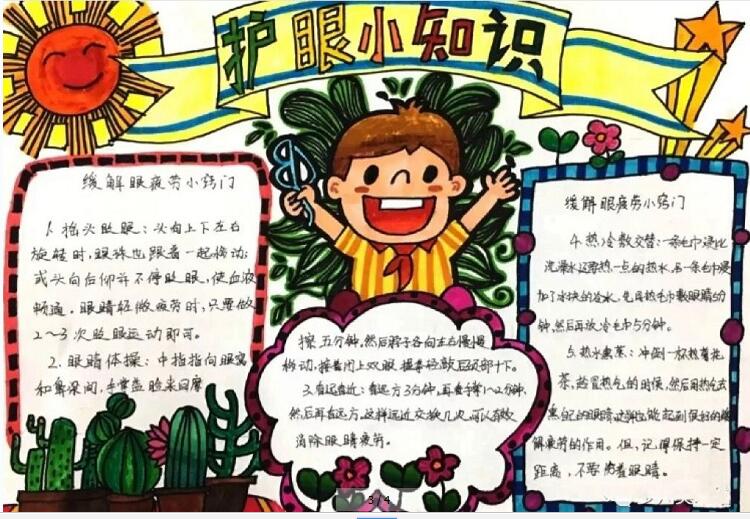 护眼小知识
缓解眼疲劳小窍门
1. 抬头眨眼：头向上下左右
旋转时，眼珠也跟着一起移动；
或头向后仰并不停眨眼，使血液
畅通。眼睛轻微疲劳时，只要做
2～3次眨眼运动即可。
2. 眼睛体操：中指指向眼窝
和鼻梁间，手掌盖脸来回摩
擦五分钟，然后脖子各向左右慢慢
移动，接着闭上双眼，握拳轻敲后颈部十下。
3. 看远看近：看远方3分钟，再看手掌1～2分钟，
然后再看远方，这样远近交换几次，可以有效
消除眼睛疲劳。
缓解眼疲劳小窍门
4. 热、冷敷交替：一条毛巾浸比
洗澡水还要热一点的热水，另一条毛巾浸
加了冰块的冷水，先用热毛巾敷眼睛约
钟，然后再放冷毛巾5分钟。
5. 热水熏蒸：冲倒一杯热菊花
茶，趁冒热气的时候，然后用热气去
熏自己的眼睛，这样也能起到很好的缓
解疲劳的作用。但，记得保持一定
距离，不要烫着眼睛。
3 / 4